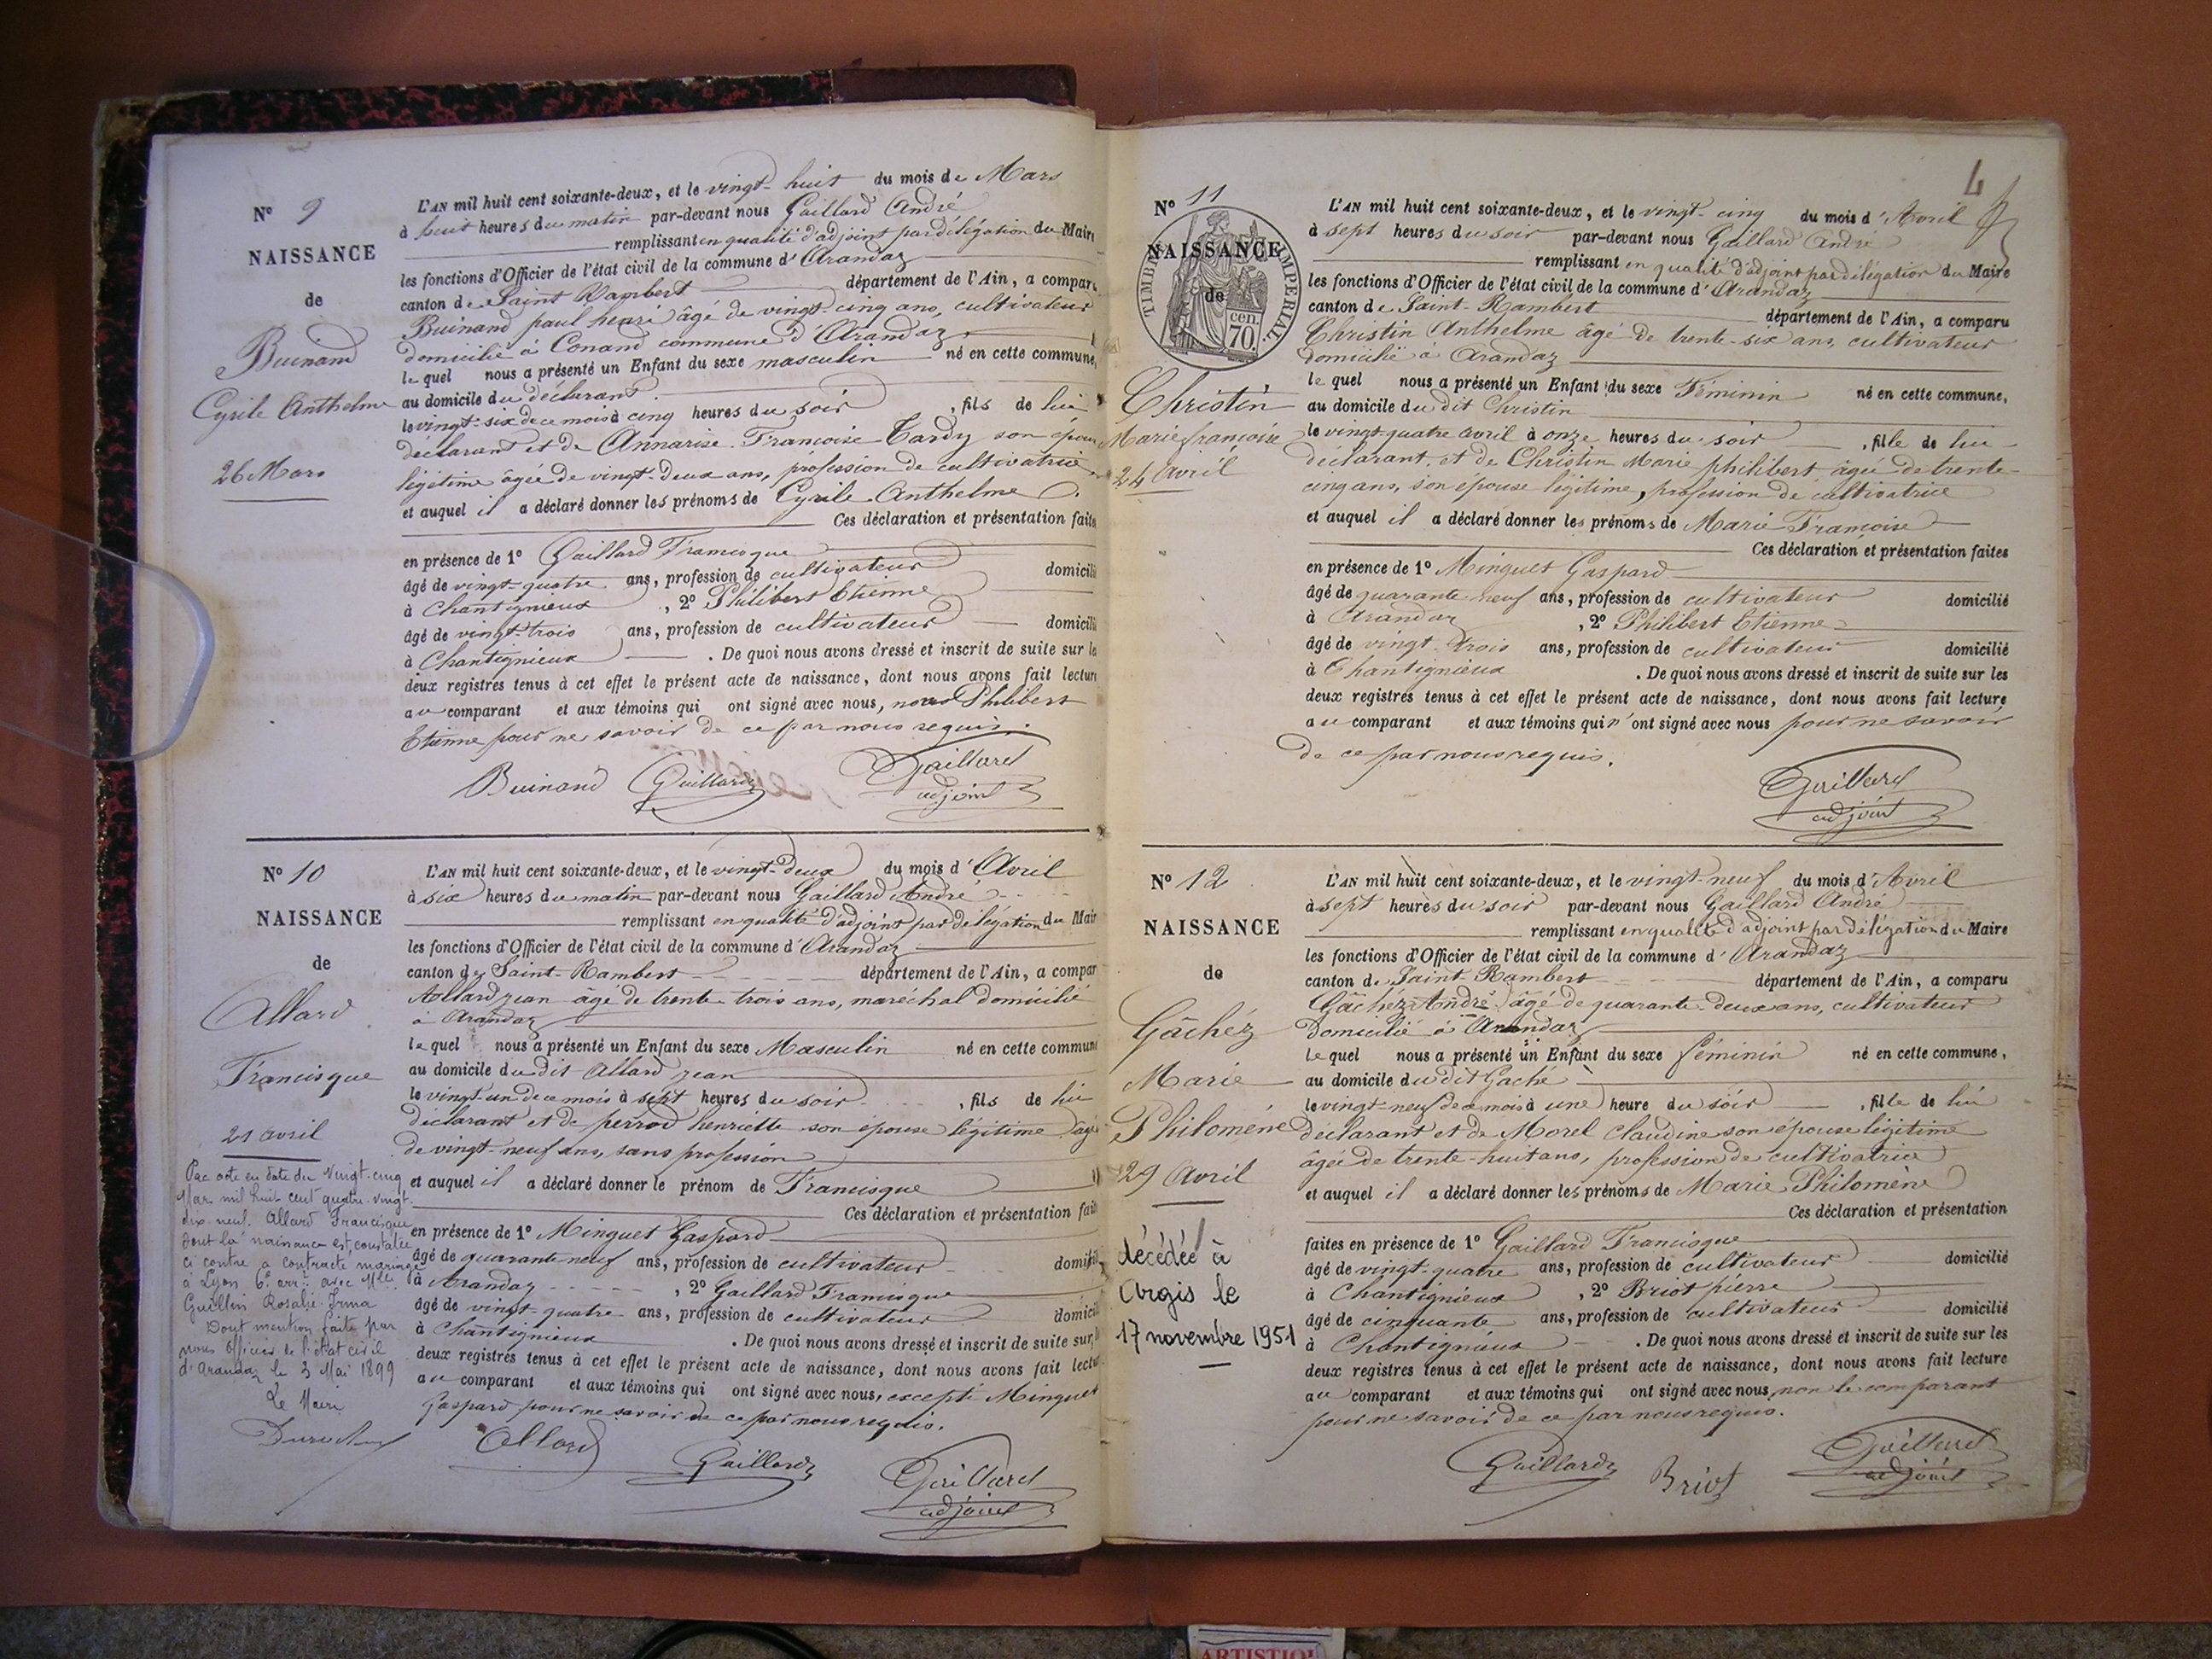 N° 9
NAISSANCE
de
Buinand
Cyrile Anthelme
26 Mars
L'AN mil huit cent soixante-deux, et le vingt-huit du mois de Mars
à huit heures du matin par-devant nous Gaillard André
remplissant en qualité d'adjoint par délégation du Maire
les fonctions d'Officier de l'état civil de la commune d'Arandaz
canton de Saint Rambert département de l'Ain, a comparu
Buinand paul henri âgé de vingt-cinq ans, cultivateur
domicilié à Conand commune d'Arandaz
lequel nous a présenté un Enfant du sexe masculin né en cette commune,
au domicile du déclarant
le vingt-six de ce mois à cinq heures du soir, fils de lui
déclarant et de Annarise Françoise Tardy son épouse
légitime âgée de vingt-deux ans, profession de cultivatrice
et auquel il a déclaré donner les prénoms de Cyrile Anthelme
Ces déclaration et présentation faites
en présence de 1° Gaillard Francisque
âgé de vingt-quatre ans, profession de cultivateur domicilié
à Chantignieux, 2° Philibert Etienne
âgé de vingt trois ans, profession de cultivateur domicilié
à Chantignieux. De quoi nous avons dressé et inscrit de suite sur le
deux registres tenus à cet effet le présent acte de naissance, dont nous avons fait lecture
au comparant et aux témoins qui ont signé avec nous, non Philibert
Etienne pour ne savoir de ce par nous requis.
Buinand Gaillard Gaillard
adjoint
N° 10
NAISSANCE
de
Allard
Francisque
21 avril
Par acte en date du Vingt-cinq
Mars mil huit cent quatre-vingt-
dix-neuf. Allard Francisque
dont la naissance est constatée
ci contre a contracté mariage
à Lyon 6e arrt avec Mlle
Guillin Rosalie Irma
Dont mention faite par
nous Officier de l'état civil
d'Arandaz le 3 Mai 1899
Le Maire
L'AN mil huit cent soixante-deux, et le vingt-deux du mois d'Avril
à six heures du matin par-devant nous Gaillard André
remplissant en qualité d'adjoint par délégation du Maire
les fonctions d'Officier de l'état civil de la commune d'Arandaz
canton de Saint-Rambert département de l'Ain, a compar
Allard jean âgé de trente-trois ans, maréchal domicilié
à Arandaz
lequel nous a présenté un Enfant du sexe Masculin né en cette commune
au domicile du dit Allard jean
le vingt-un de ce mois à sept heures du soir, fils de lui
déclarant et de perrod henriette son épouse légitime âgée
de vingt-neuf ans, sans profession
et auquel il a déclaré donner le prénom de Francisque
Ces déclaration et présentation faites
en présence de 1° Minguet Gaspard
âgé de quarante neuf ans, profession de cultivateur domicilié
à Arandaz, 2° Gaillard Francisque
âgé de vingt-quatre ans, profession de cultivateur domicilié
à Chantignieux. De quoi nous avons dressé et inscrit de suite sur
deux registres tenus à cet effet le présent acte de naissance, dont nous avons fait lecture
au comparant et aux témoins qui ont signé avec nous, excepté Minguet
Gaspard pour ne savoir de ce par nous requis.
Allard Gaillard Gaillard
adjoint
4
N° 11
NAISSANCE
de
TIMBRE IMPERIAL
70 cen.
Christin
Marie françoise
24 avril
L'AN mil huit cent soixante-deux, et le vingt-cinq du mois d'Avril
à sept heures du soir par-devant nous Gaillard André
remplissant en qualité d'adjoint par délégation du Maire
les fonctions d'Officier de l'état civil de la commune d'Arandaz
canton de Saint-Rambert département de l'Ain, a comparu
Christin Anthelme âgé de trente-six ans, cultivateur
domicilié à Arandaz
lequel nous a présenté un Enfant du sexe Féminin né en cette commune,
au domicile du dit Christin
le vingt-quatre avril à onze heures du soir, fille de lui
déclarant, et de Christin Marie philibert âgée de trente-
cinq ans, son épouse légitime, profession de cultivatrice
et auquel il a déclaré donner les prénoms de Marie Françoise
Ces déclaration et présentation faites
en présence de 1° Minguet Gaspard
âgé de quarante neuf ans, profession de cultivateur domicilié
à Arandaz, 2° Philibert Etienne
âgé de vingt-trois ans, profession de cultivateur domicilié
à Chantignieux. De quoi nous avons dressé et inscrit de suite sur les
deux registres tenus à cet effet le présent acte de naissance, dont nous avons fait lecture
au comparant et aux témoins qui n'ont signé avec nous pour ne savoir
de ce par nous requis.
Gaillard
adjoint
N° 12
NAISSANCE
de
Gâchéz
Marie
Philoméne
29 Avril
décédée à
Argis le
17 novembre 1951
L'AN mil huit cent soixante-deux, et le vingt-neuf du mois d'Avril
à sept heures du soir par-devant nous Gaillard André
remplissant en qualité d'adjoint par délégation du Maire
les fonctions d'Officier de l'état civil de la commune d'Arandaz
canton de Saint Rambert département de l'Ain, a comparu
Gâchéz André âgé de quarante-deux ans, cultivateur
domicilié à Arandaz
lequel nous a présenté un Enfant du sexe féminin né en cette commune,
au domicile du dit Gaché
le vingt-neuf de ce mois à une heure du soir, fille de lui
déclarant et de Morel claudine son épouse légitime
âgée de trente-huit ans, profession de cultivatrice
et auquel il a déclaré donner les prénoms de Marie Philomène
Ces déclaration et présentation
faites en présence de 1° Gaillard Francisque
âgé de vingt-quatre ans, profession de cultivateur domicilié
à Chantignieux, 2° Briot pierre
âgé de cinquante ans, profession de cultivateur domicilié
à Chantignieux. De quoi nous avons dressé et inscrit de suite sur les
deux registres tenus à cet effet le présent acte de naissance, dont nous avons fait lecture
au comparant et aux témoins qui ont signé avec nous, non le comparant
pour ne savoir de ce par nous requis.
Gaillard Briot Gaillard
adjoint